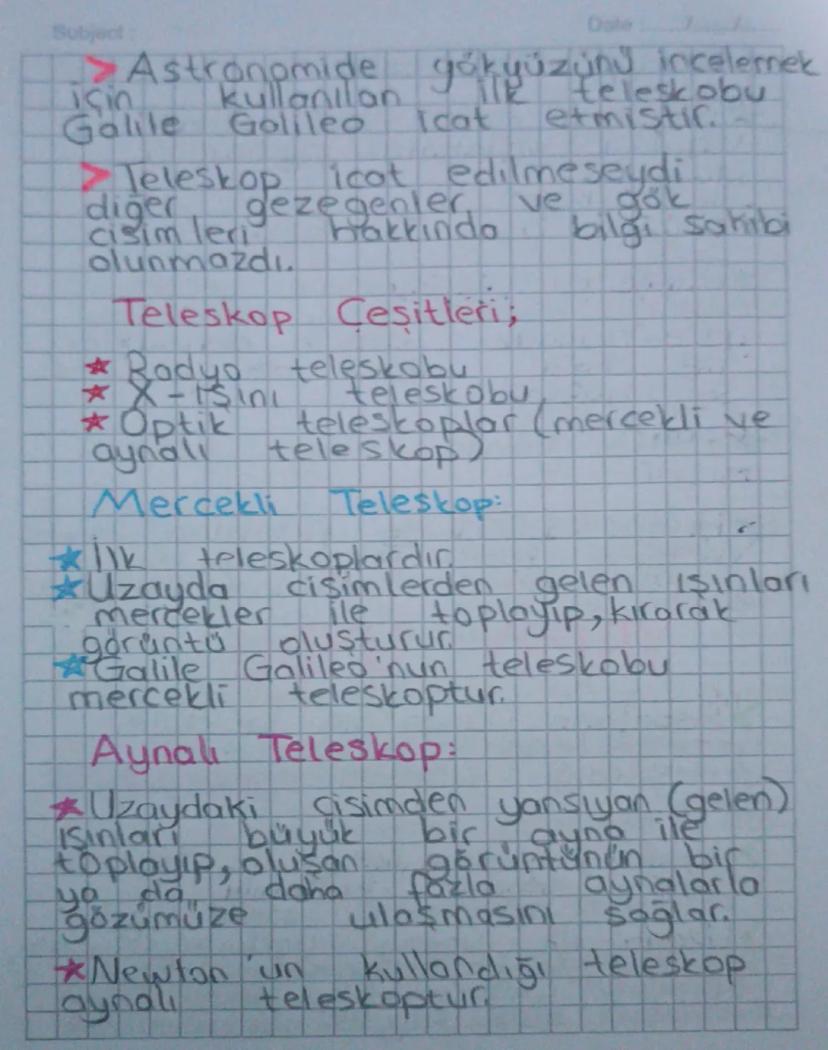 Subject:
Date : / /
> Astronomide gökyüzünü incelemek
için kullanılan ilk teleskobu
Galile Galileo icat etmiştir.
> Teleskop icat edilmeseydi
diğer gezegenler ve gök
cisimleri hakkında bilgi sahibi
olunmazdı.
Teleskop Çeşitleri;
* Radyo teleskobu
* X-ışını teleskobu
* Optik teleskoplar (mercekli ve
aynalı teleskop)
Mercekli Teleskop:
* İlk teleskoplardır.
* Uzayda cisimlerden gelen ışınları
mercekler ile toplayıp, kırarak
görüntü oluşturur.
* Galile Galileo'nun teleskobu
mercekli teleskoptur.
Aynalı Teleskop:
* Uzaydaki cisimden yansıyan (gelen)
ışınları büyük bir ayna ile
toplayıp, oluşan görüntünün bir
ya da daha fazla aynalarla
gözümüze ulaşmasını sağlar.
* Newton'un kullandığı teleskop
aynalı teleskoptur.